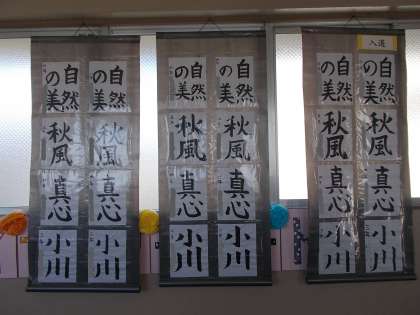 入選
自然
の美
秋風
真心
小川
自然
の美
秋風
真心
小川
自然
の美
秋風
真心
小川
自然
の美
秋風
真心
小川
自然
の美
秋風
真心
小川
自然
の美
秋風
真心
小川